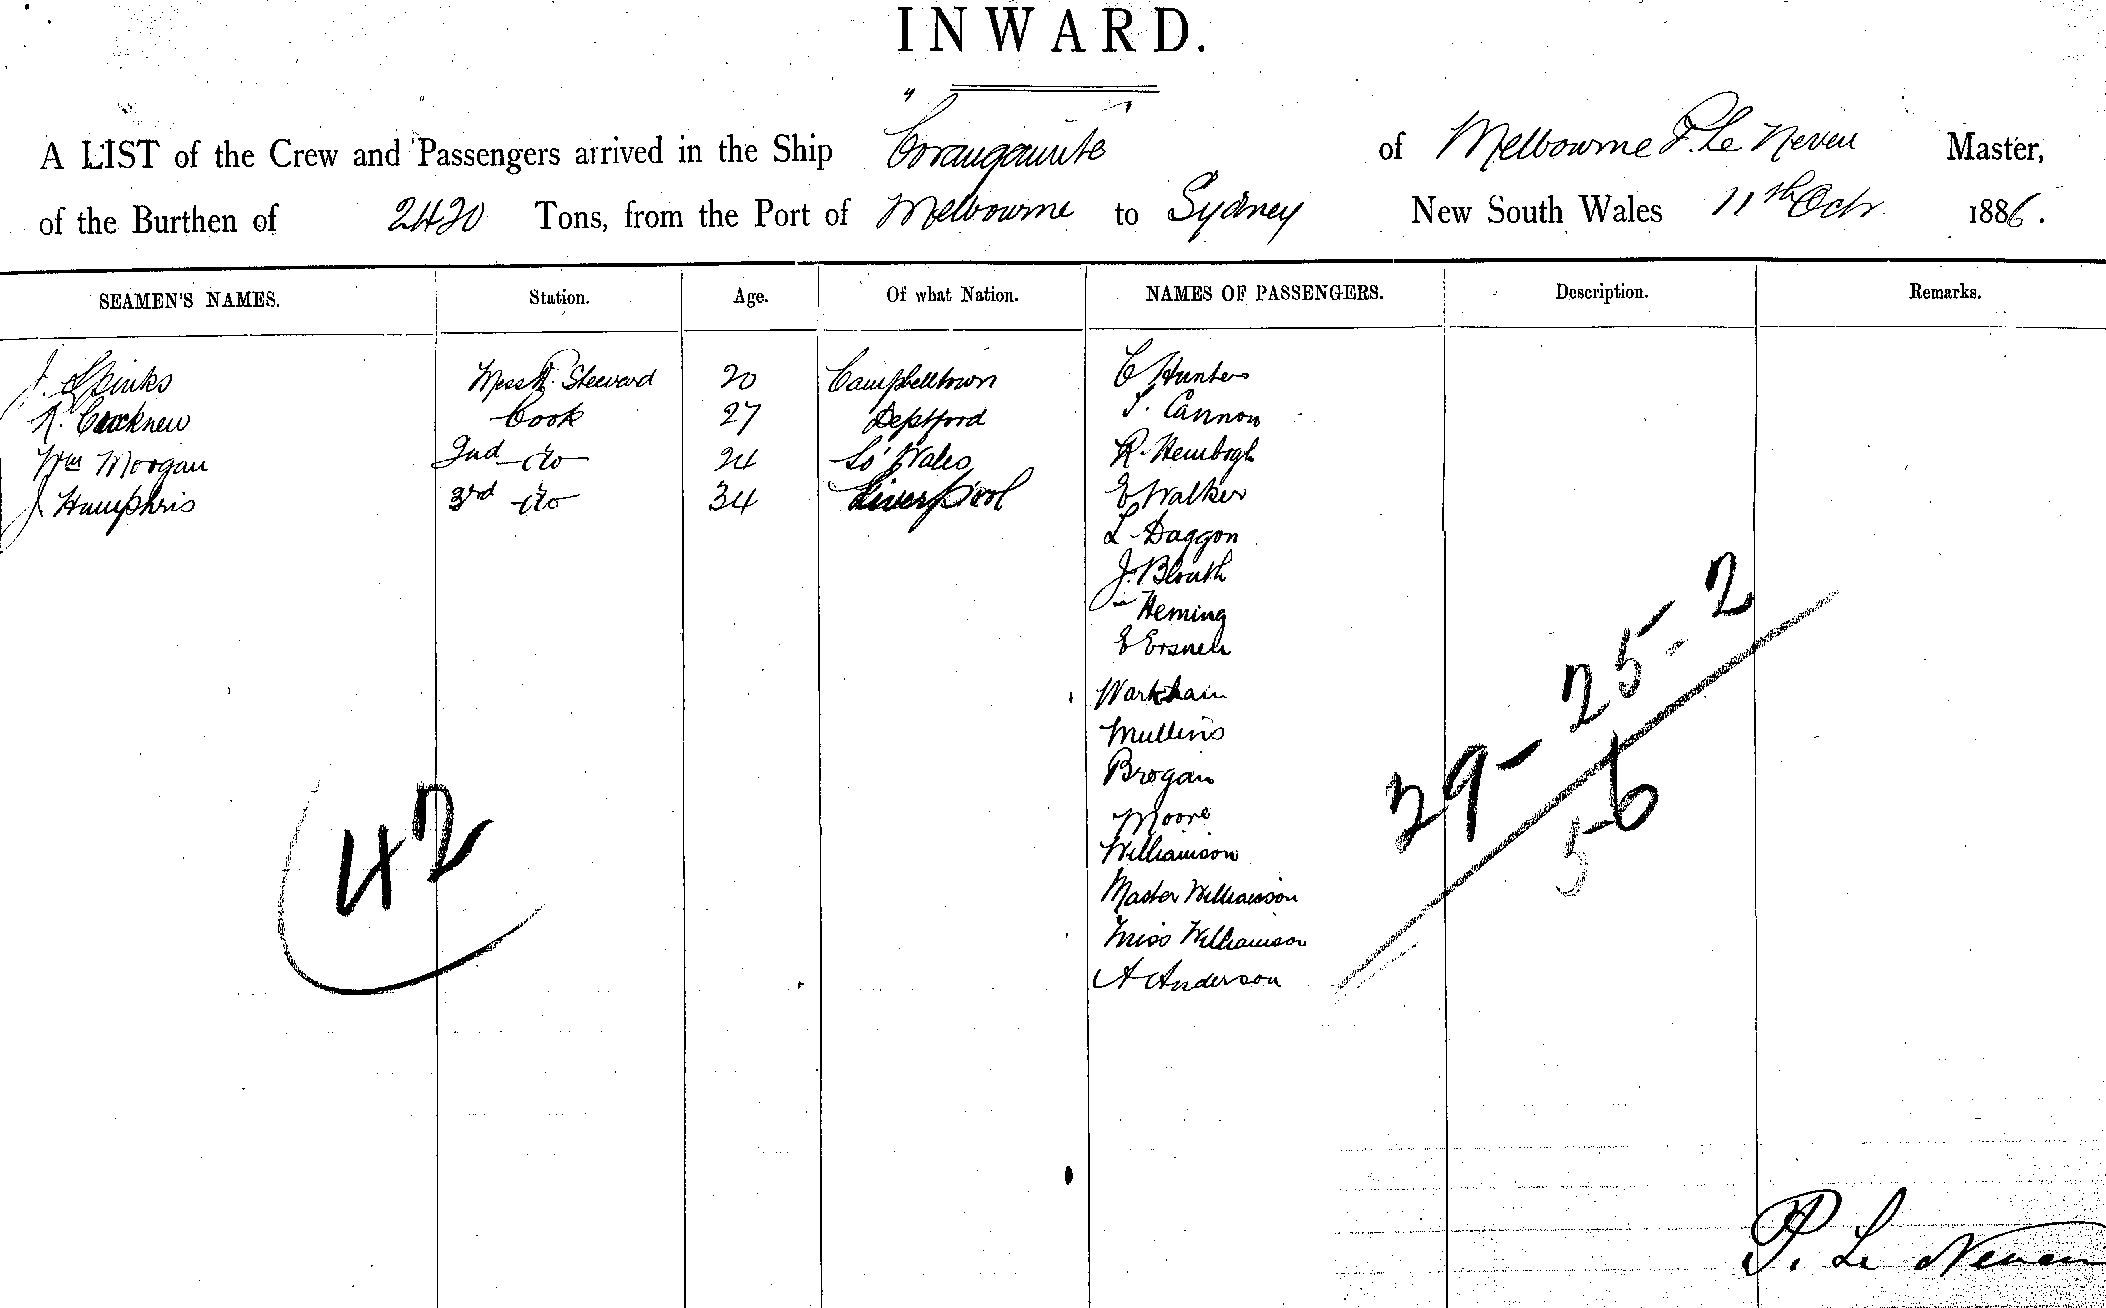 INWARD.
A LIST of the Crew and Passengers arrived in the Ship Corangamite of Melbourne P. Le Neveu Master,
of the Burthen of 2420 Tons, from the Port of Melbourne to Sydney New South Wales 11th Octr 1886.
SEAMEN'S NAMES. Station. Age. Of what Nation. NAMES OF PASSENGERS. Description. Remarks.
J. Spinks Mess R. Steward 20 Campbelltown C Hunter
R. Cook 27 Deptford Cannon
Wm Morgan 2nd do 24 So' Wales R.
J Humphris 3rd do 34 Liverpool E Walker
L Daggon
J.
Heming
E
Markham
Mullins
Brogan
Moore
Williamson
Master Williamson
Miss Williamson
A Anderson
29-25-2
56
42
P. Le Neveu